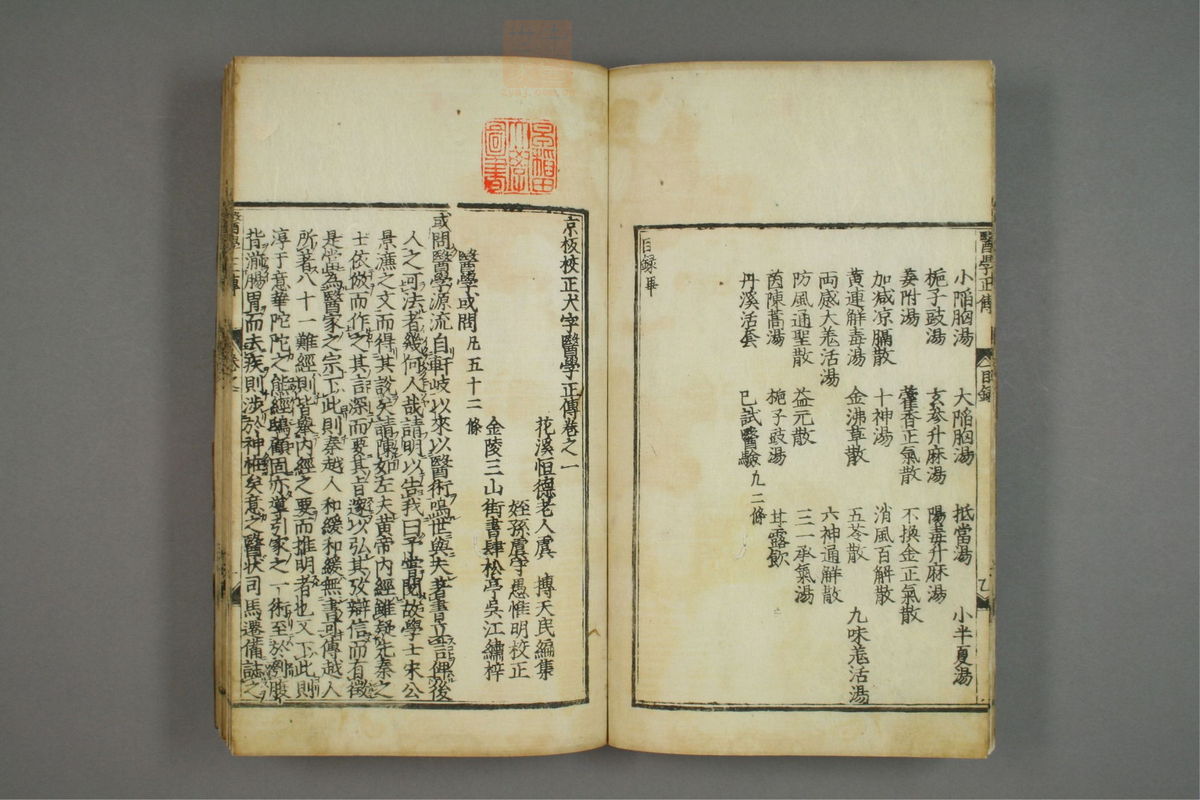 醫學正傳
目錄
小陷胸湯 大陷胸湯 抵當湯 小半夏湯
梔子豉湯 玄參升麻湯 陽毒升麻湯
姜附湯 藿香正氣散 不換金正氣散
加減凉膈散 十神湯 消風百解散
黃連解毒湯 金沸草散 五苓散 九味羗活湯
両感大羗活湯 六神通解散
防風通聖散 益元散 三一承氣湯
茵陳蒿湯 梔子豉湯 甘露飲
丹溪活套 已試醫驗九二條
目錄畢
早稲田
大學
圖書
京板校正大字醫學正傳卷之一
花溪恒德老人虞 摶天民編集
姪孫虞學愚惟明校正
金陵三山街書肆松亭吳江繡梓
醫學或問 凡五十二條
或問醫學源流自軒岐以來以醫術鳴世與夫著書立言俾後
人之可法者幾何人哉請明以告我曰予嘗閱故學士宋公
景濂之文而得其說矣請陳如左夫黃帝内經雖疑先秦之
士依倣而作之其言深而要其旨邃以弘其攷辯信而有徵
是當為醫家之宗下此則秦越人和緩和緩無書可傳越人
所著八十一難經則皆舉内經之要而推明者也又下此則
淳于意華陀陀之熊經鴟顧固亦導引家之一術至於刳腹
背湔腸胃而去疾則涉於神怪矣意之醫狀司馬遷備誌之
醫學正傳
卷之一